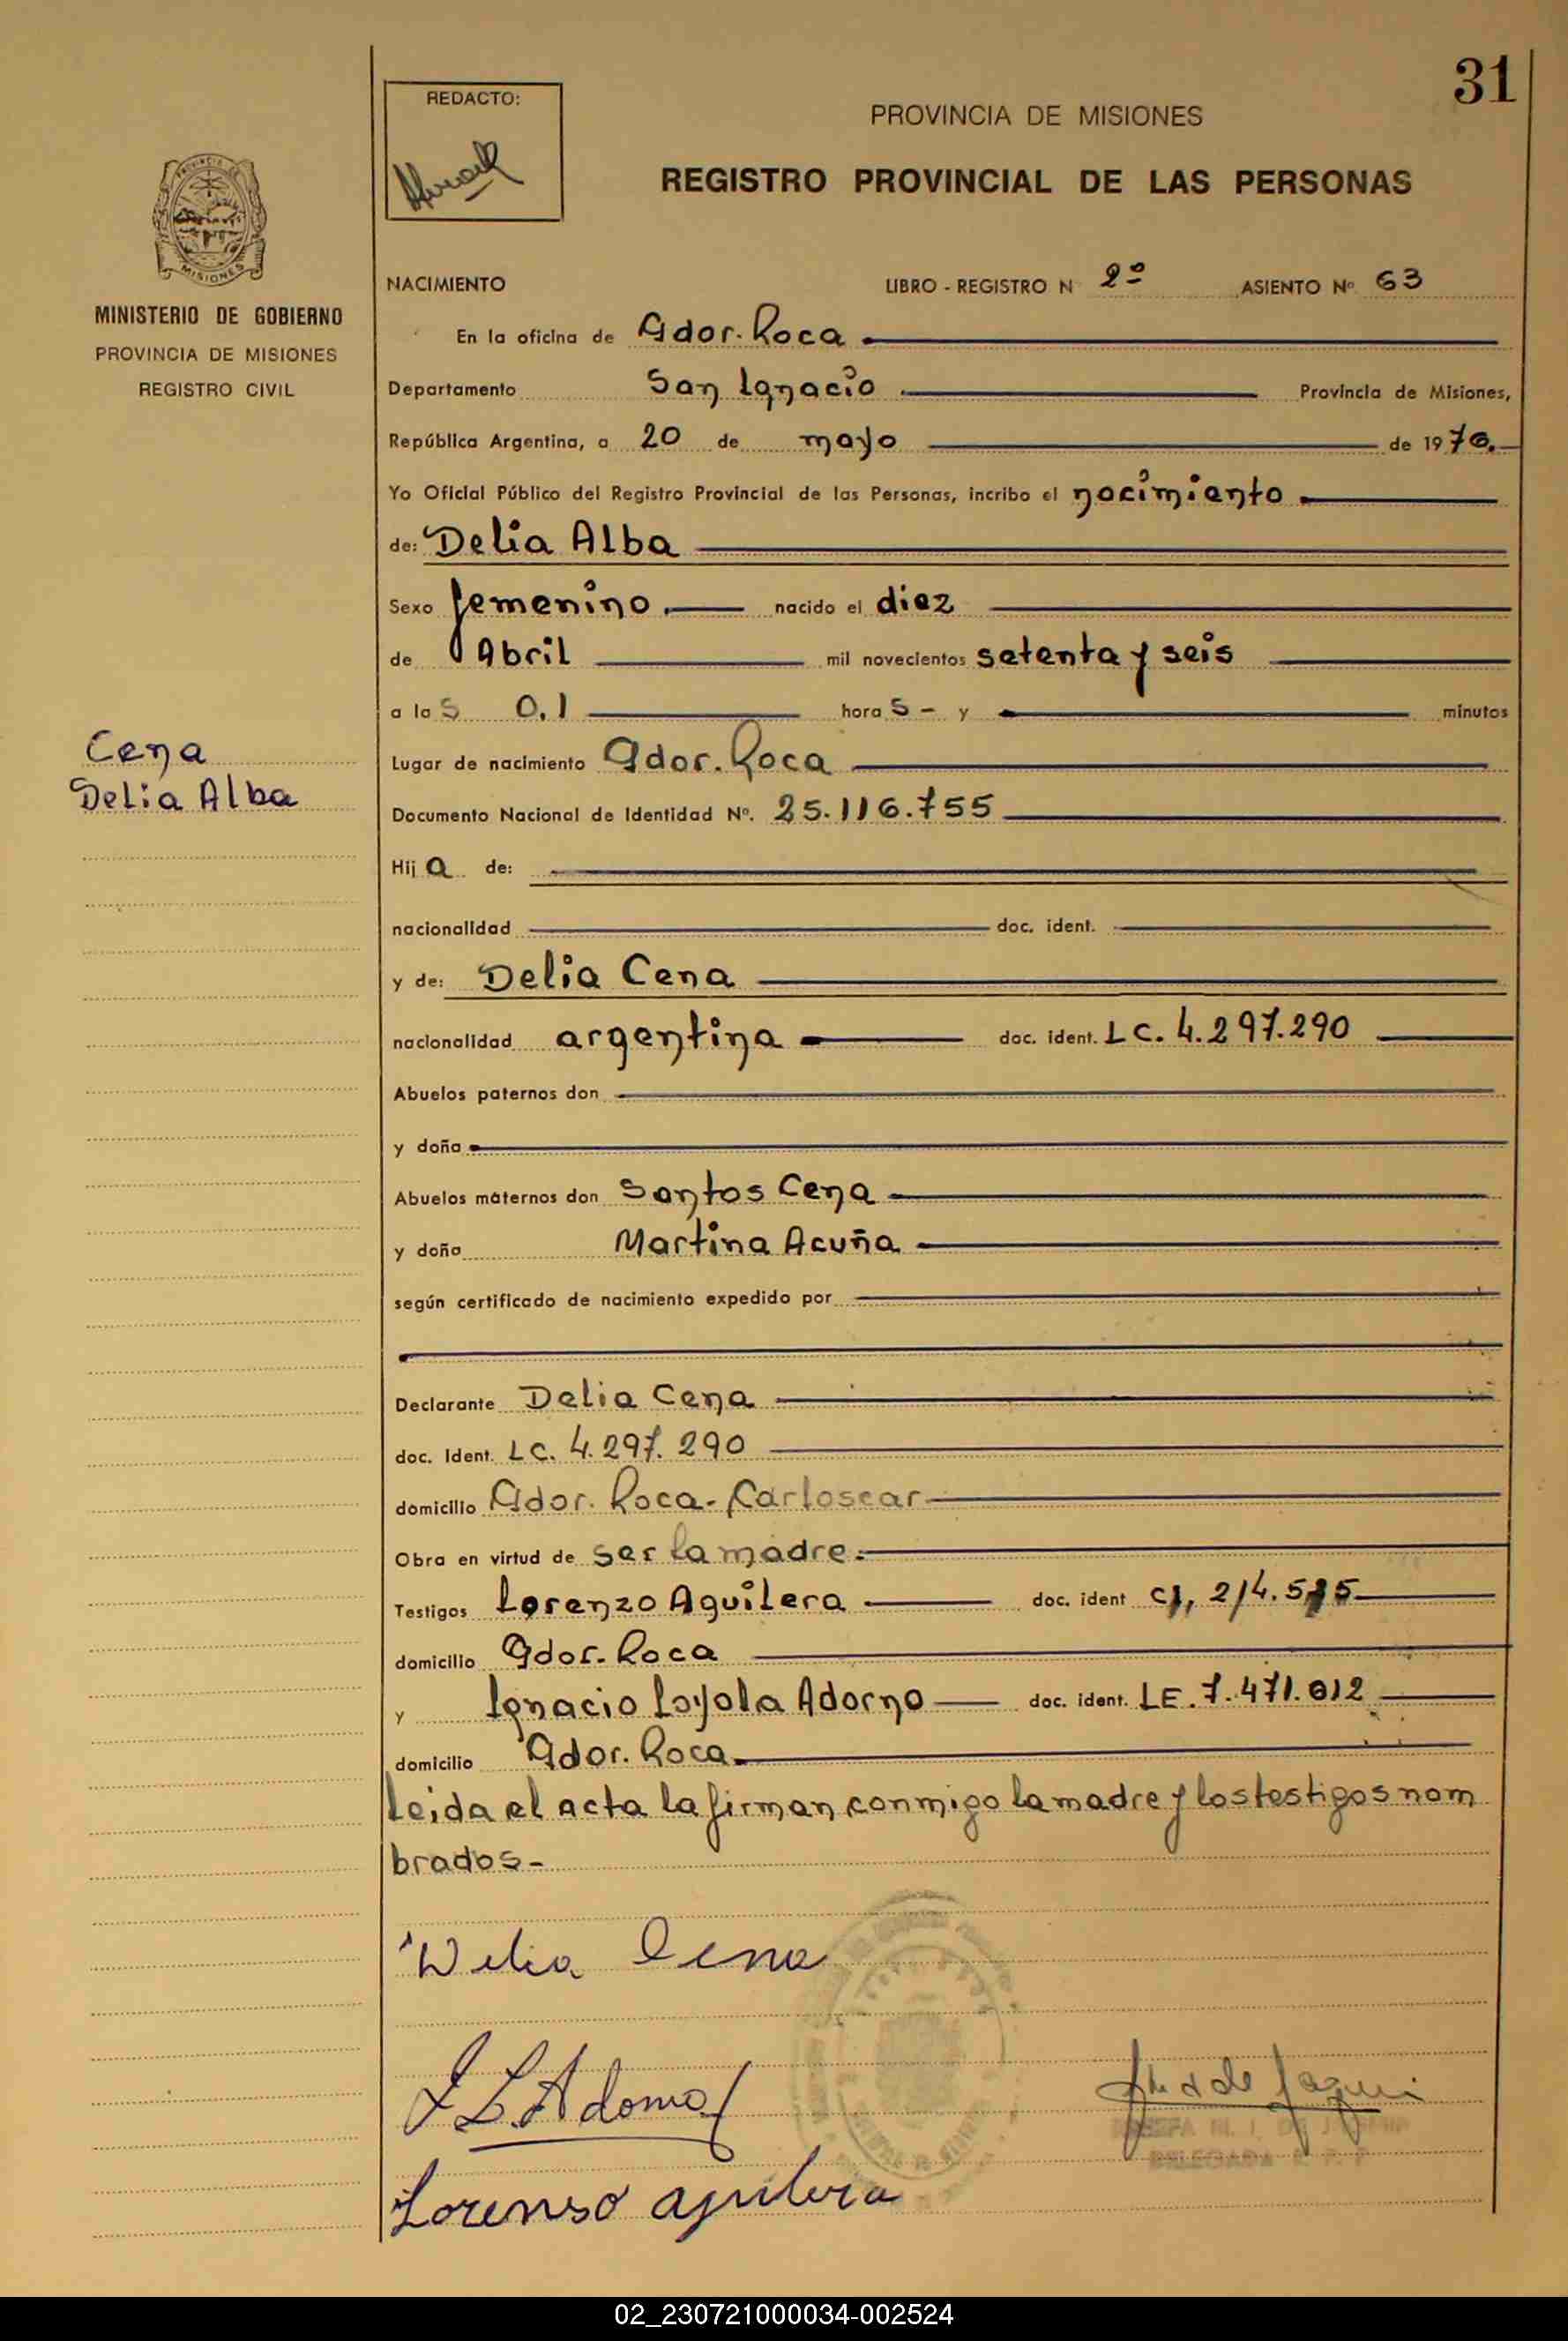 31
REDACTO:
PROVINCIA DE MISIONES
REGISTRO PROVINCIAL DE LAS PERSONAS
MISIONES
MINISTERIO DE GOBIERNO
PROVINCIA DE MISIONES
REGISTRO CIVIL
NACIMIENTO LIBRO - REGISTRO N 2º ASIENTO Nº 63
En la oficina de Gdor. Roca
Departamento San Ignacio Provincia de Misiones,
República Argentina, a 20 de mayo de 1976.
Yo Oficial Público del Registro Provincial de las Personas, incribo el nacimiento
de: Delia Alba
Sexo femenino. nacido el diez
de Abril mil novecientos setenta y seis
a las 0,1 horas - y minutos
Cena
Delia Alba
Lugar de nacimiento Gdor. Roca
Documento Nacional de Identidad Nº. 25.116.755
Hija de:
nacionalidad doc. ident.
y de: Delia Cena
nacionalidad argentina doc. ident. LC. 4.297.290
Abuelos paternos don
y doña
Abuelos maternos don Santos Cena
y doña Martina Acuña
según certificado de nacimiento expedido por
Declarante Delia Cena
doc. Ident. LC. 4.297.290
domicilio Gdor. Roca- Carloscar
Obra en virtud de ser la madre.
Testigos Lorenzo Aguilera doc. ident
domicilio Gdor. Roca
y Ignacio Loyola Adorno doc. ident. LE. 7.471.012
domicilio Gdor. Roca
Leida el acta la firman conmigo la madre y los testigos nom
brados-
Delia Cena
I L. Adorno
DELEGADA R. P. P.
Lorenso aguilera
02_230721000034-002524